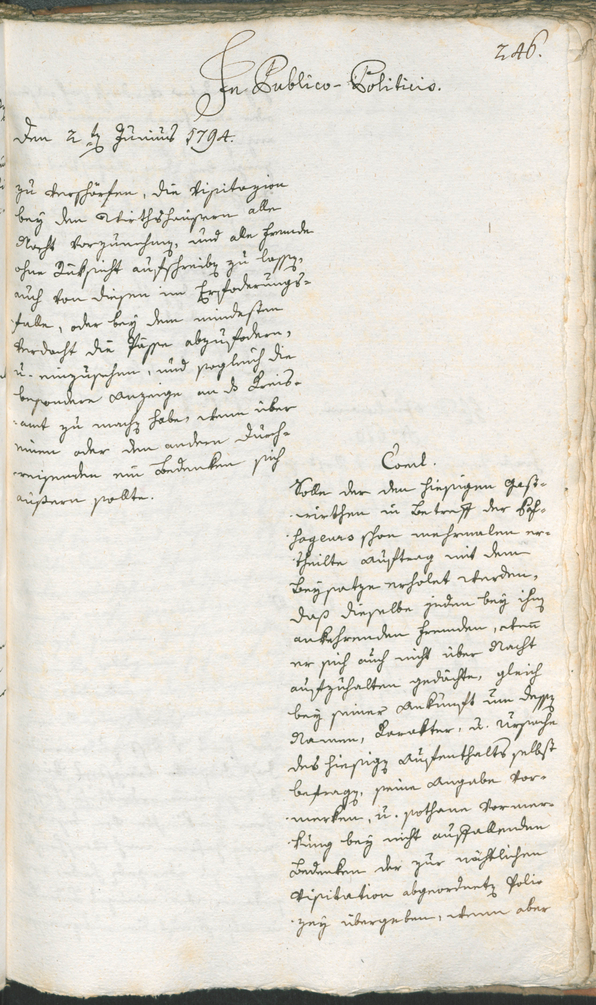 246.
In Publico-Politicis.
Den 2ten Junius 1794.
zu verschärfen, die Visitazion
bey den Wirthshäusern alle
Nacht vorzunehmen, und alle Fremde
ohne Rüksicht aufschreiben zu lassen,
auch von diesen im Erfoderungs-
falle, oder bey dem mindesten
Verdacht die Pässe abzufodern,
u. einzusehen, und sogleich die
besondere Anzeige an ds Kreis-
amt zu machen habe, wenn über
einen oder den andern Durch-
reisenden ein Bedenken sich
äußern sollte.
Concl.
Solle der den hiesigen Gast-
wirthen in Betreff der Pas-
sagears schon mehrmalen er-
theilte Auftrag mit dem
Beysatze erholet werden,
daß dieselbe jeden bey ihnen
ankehrenden Fremden, wenn
er sich auch nicht über Nacht
aufzuhalten gedächte, gleich
bey seiner Ankunft um dessen
Namen, Karakter, u. Ursache
des hiesigen Aufenthalts selbst
befragen, seine Angabe vor-
merken, u. sothane Vormer-
kung bey nicht auffallenden
Bedenken der zur nächtlichen
Visitation abgeordneten Poli-
zey übergeben, wenn aber